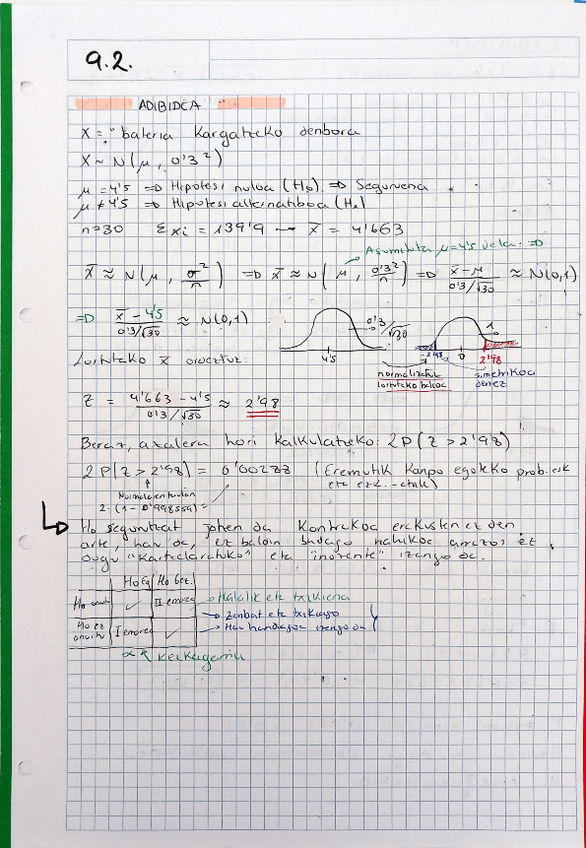 9.2.
ADIBIDEA
X = "bateria Kargatzeko denbora
X ~ N(μ, 0'3²)
μ = 4'5 => Hipotesi nuloa (H₀) => Seguruena
μ ≠ 4'5 => Hipotesi alternatiboa (H₁)
n=30 Σxi = 139'9 → x̄ = 4'663
Asumituta μ=4'5 dela. =>
X̄ ≈ N(μ, σ²/n) => X̄ ≈ N(μ, 0'3²/n) => (X̄-μ)/(0'3/√30) ≈ N(0,1)
=> (X̄-4'5)/(0'3/√30) ≈ N(0,1)
0'3/√30
4'5
1
-2'98 0 2'98
Lortutako x̄ ordeztuz:
normalizatuz
lortutako balioa
simetrikoa
denez
Z = (4'663-4'5)/(0'3/√30) ≈ 2'98
Beraz, azalera hori kalkulatzeko: 2P(Z > 2'98)
2P(Z > 2'98) = 0'00288 (Eremutik kanpo egoteko prob.
Normalaren taulan
2·(1-0'998559)=
H₀ seguntzat johen da kontrakoa erakusten ez den
arte, hau da, ez baldin badago nahikoa arrazoi ez
dugu "Kartzelaratuko" eta "inozente" izango da.
H₀ Eg H₀ Gez.
H₀ onartu ✓ II errorea
H₀ ez
onartu I errorea ✓
Halalik eta txikiena
Zenbat eta txikiago
Hau handiagoa izango da
α